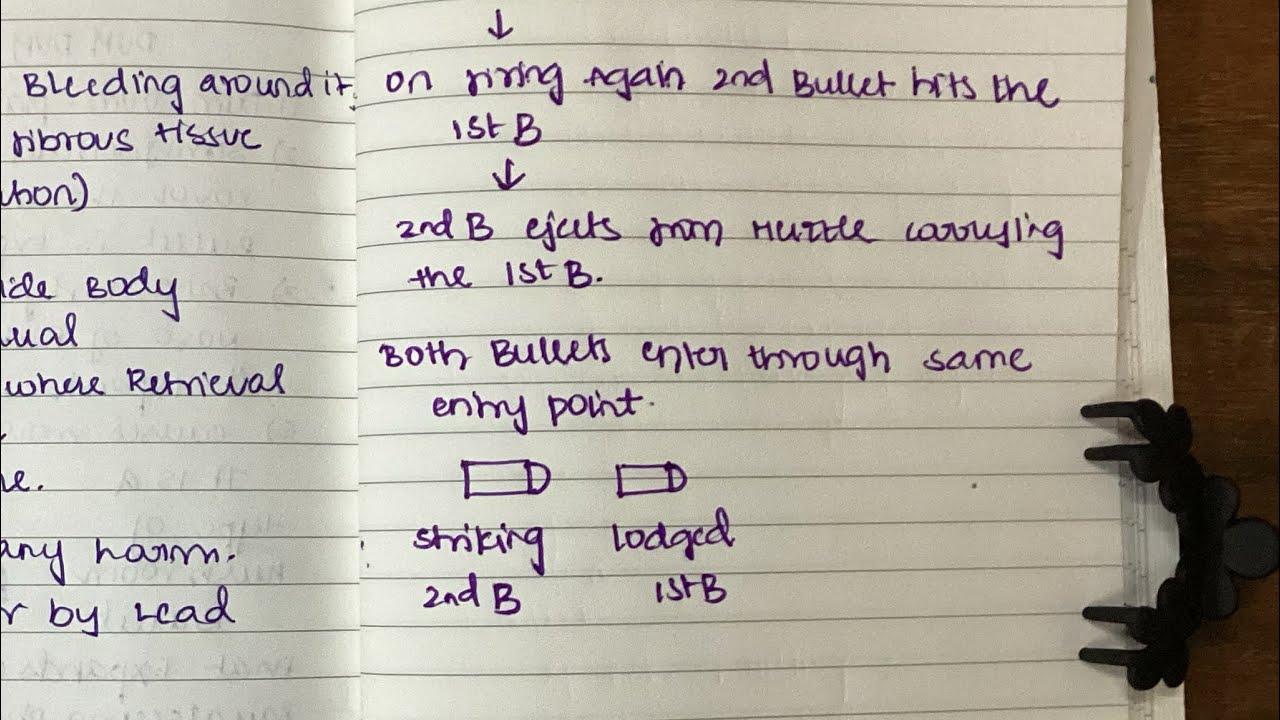 Bleeding around it.
fibrous tissue
Body
where Retrieval
any harm.
by Lead
↓
on firing Again 2nd Bullet hits the
1st B
↓
2nd B ejects from Muzzle carrying
the 1st B.
Both Bullets enter through same
entry point.
striking lodged
2nd B 1st B